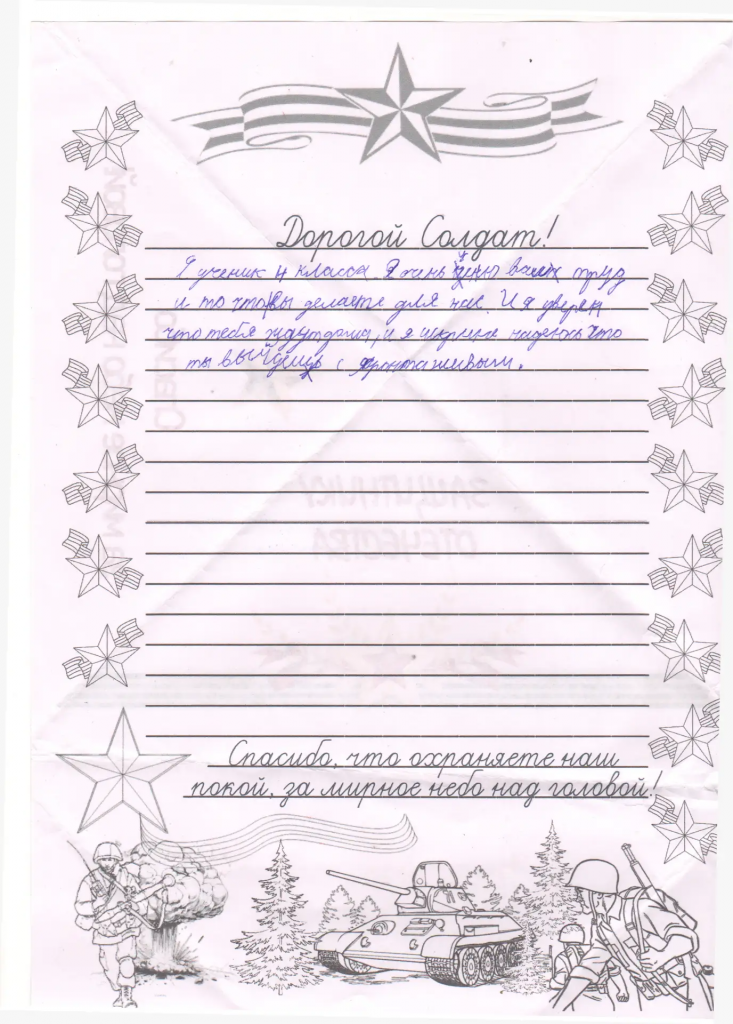 Дорогой Солдат!
Я ученик 4 класса. Я очень ценю ваш труд
и то что вы делаете для нас. И я уверен
что тебя ждут дома, и я искрине надеюсь что
ты выйдешь с фронта живым.
ЗАЩИТНИКУ
ОТЕЧЕСТВА
Спасибо, что охраняете наш
покой, за мирное небо над головой!